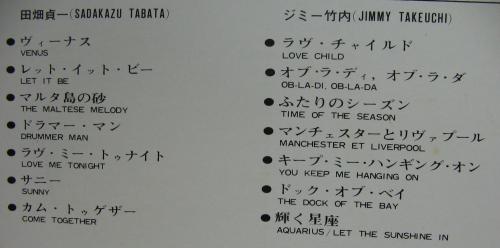 田畑貞一(SADAKAZU TABATA)
● ヴィーナス
VENUS
● レット・イット・ビー
LET IT BE
● マルタ島の砂
THE MALTESE MELODY
● ドラマー・マン
DRUMMER MAN
● ラヴ・ミー・トゥナイト
LOVE ME TONIGHT
● サニー
SUNNY
● カム・トゥゲザー
COME TOGETHER
ジミー竹内(JIMMY TAKEUCHI)
● ラヴ・チャイルド
LOVE CHILD
● オブ・ラ・ディ, オブ・ラ・ダ
OB-LA-DI, OB-LA-DA
● ふたりのシーズン
TIME OF THE SEASON
● マンチェスターとリヴァプール
MANCHESTER ET LIVERPOOL
● キープ・ミー・ハンギング・オン
YOU KEEP ME HANGING ON
● ドック・オブ・ベイ
THE DOCK OF THE BAY
● 輝く星座
AQUARIUS/LET THE SUNSHINE IN